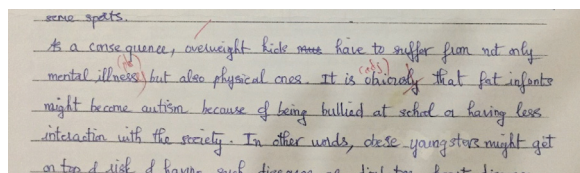 some sports.
As a consequence, overweight kids have to suffer from not only
mental illness, but also physical ones. It is obviously that fat infants
might become autism because of being bullied at school or having less
interaction with the society. In other words, obese youngsters might get
on top of risk of having such diseases